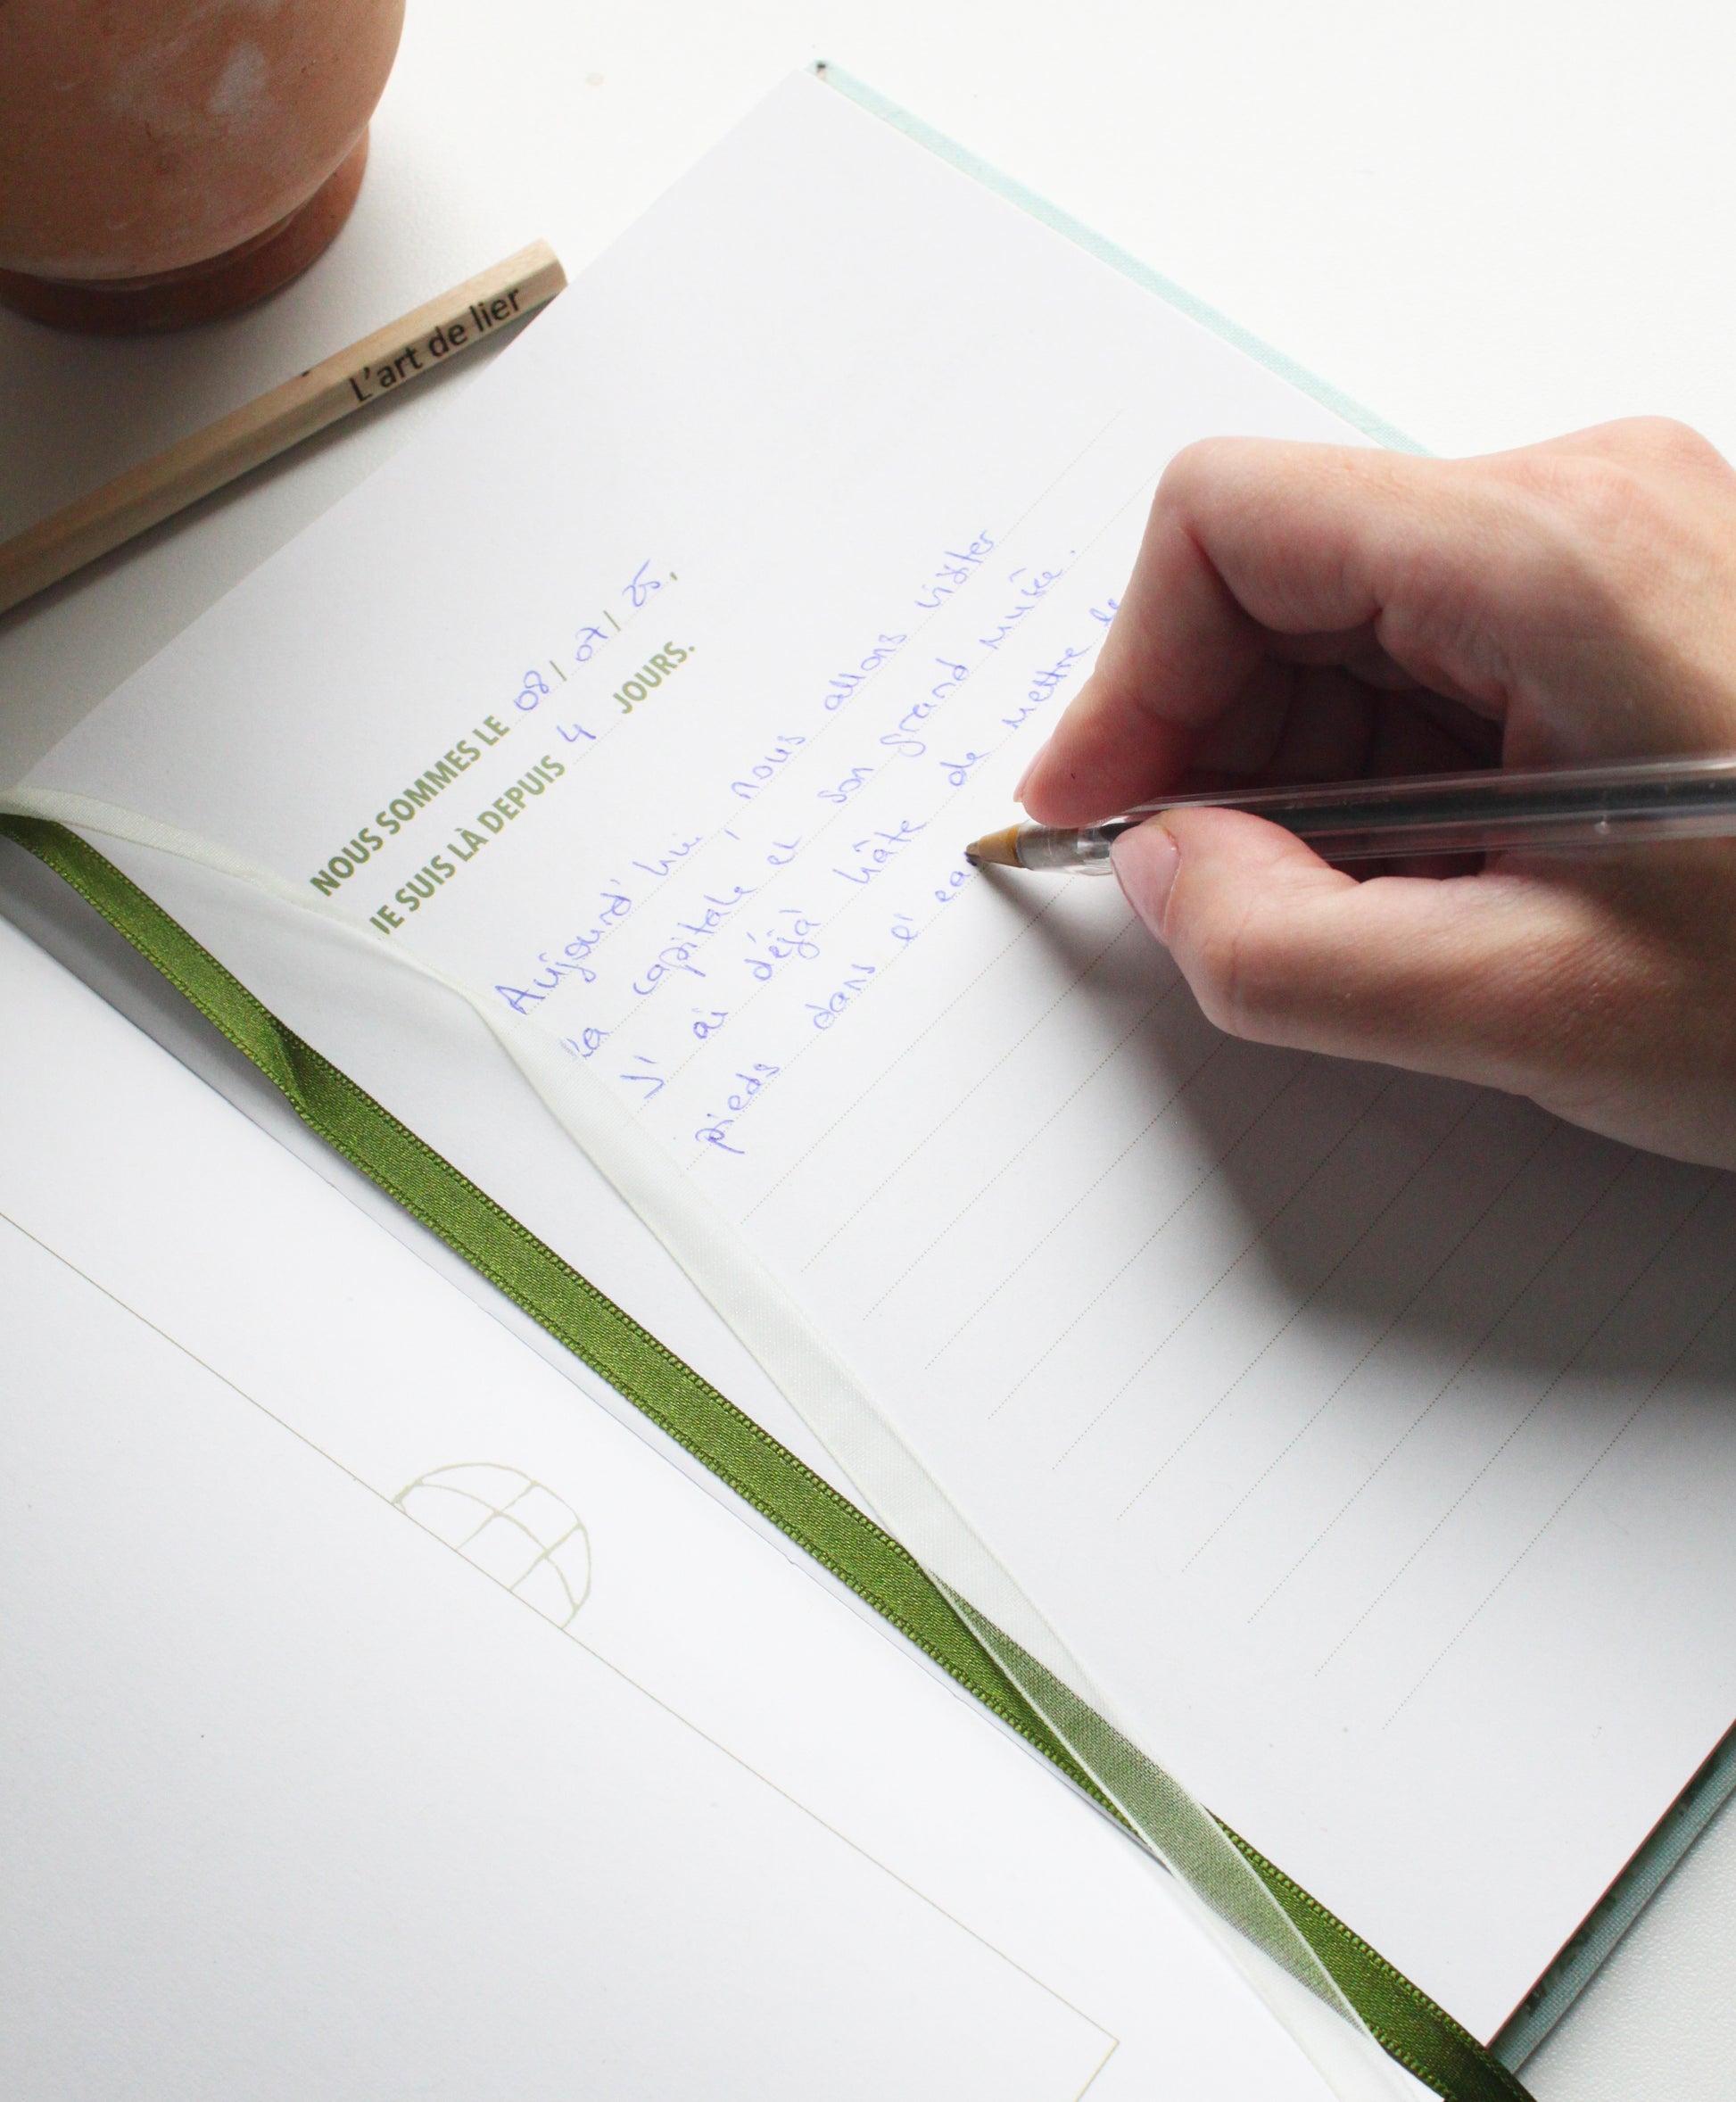 L'art de lier
NOUS SOMMES LE 08/07/25,
JE SUIS LÀ DEPUIS 4 JOURS.
Aujourd'hui, nous allons visiter
la capitale et son grand musée.
J'ai déjà hâte de mettre le
pieds dans l'ea